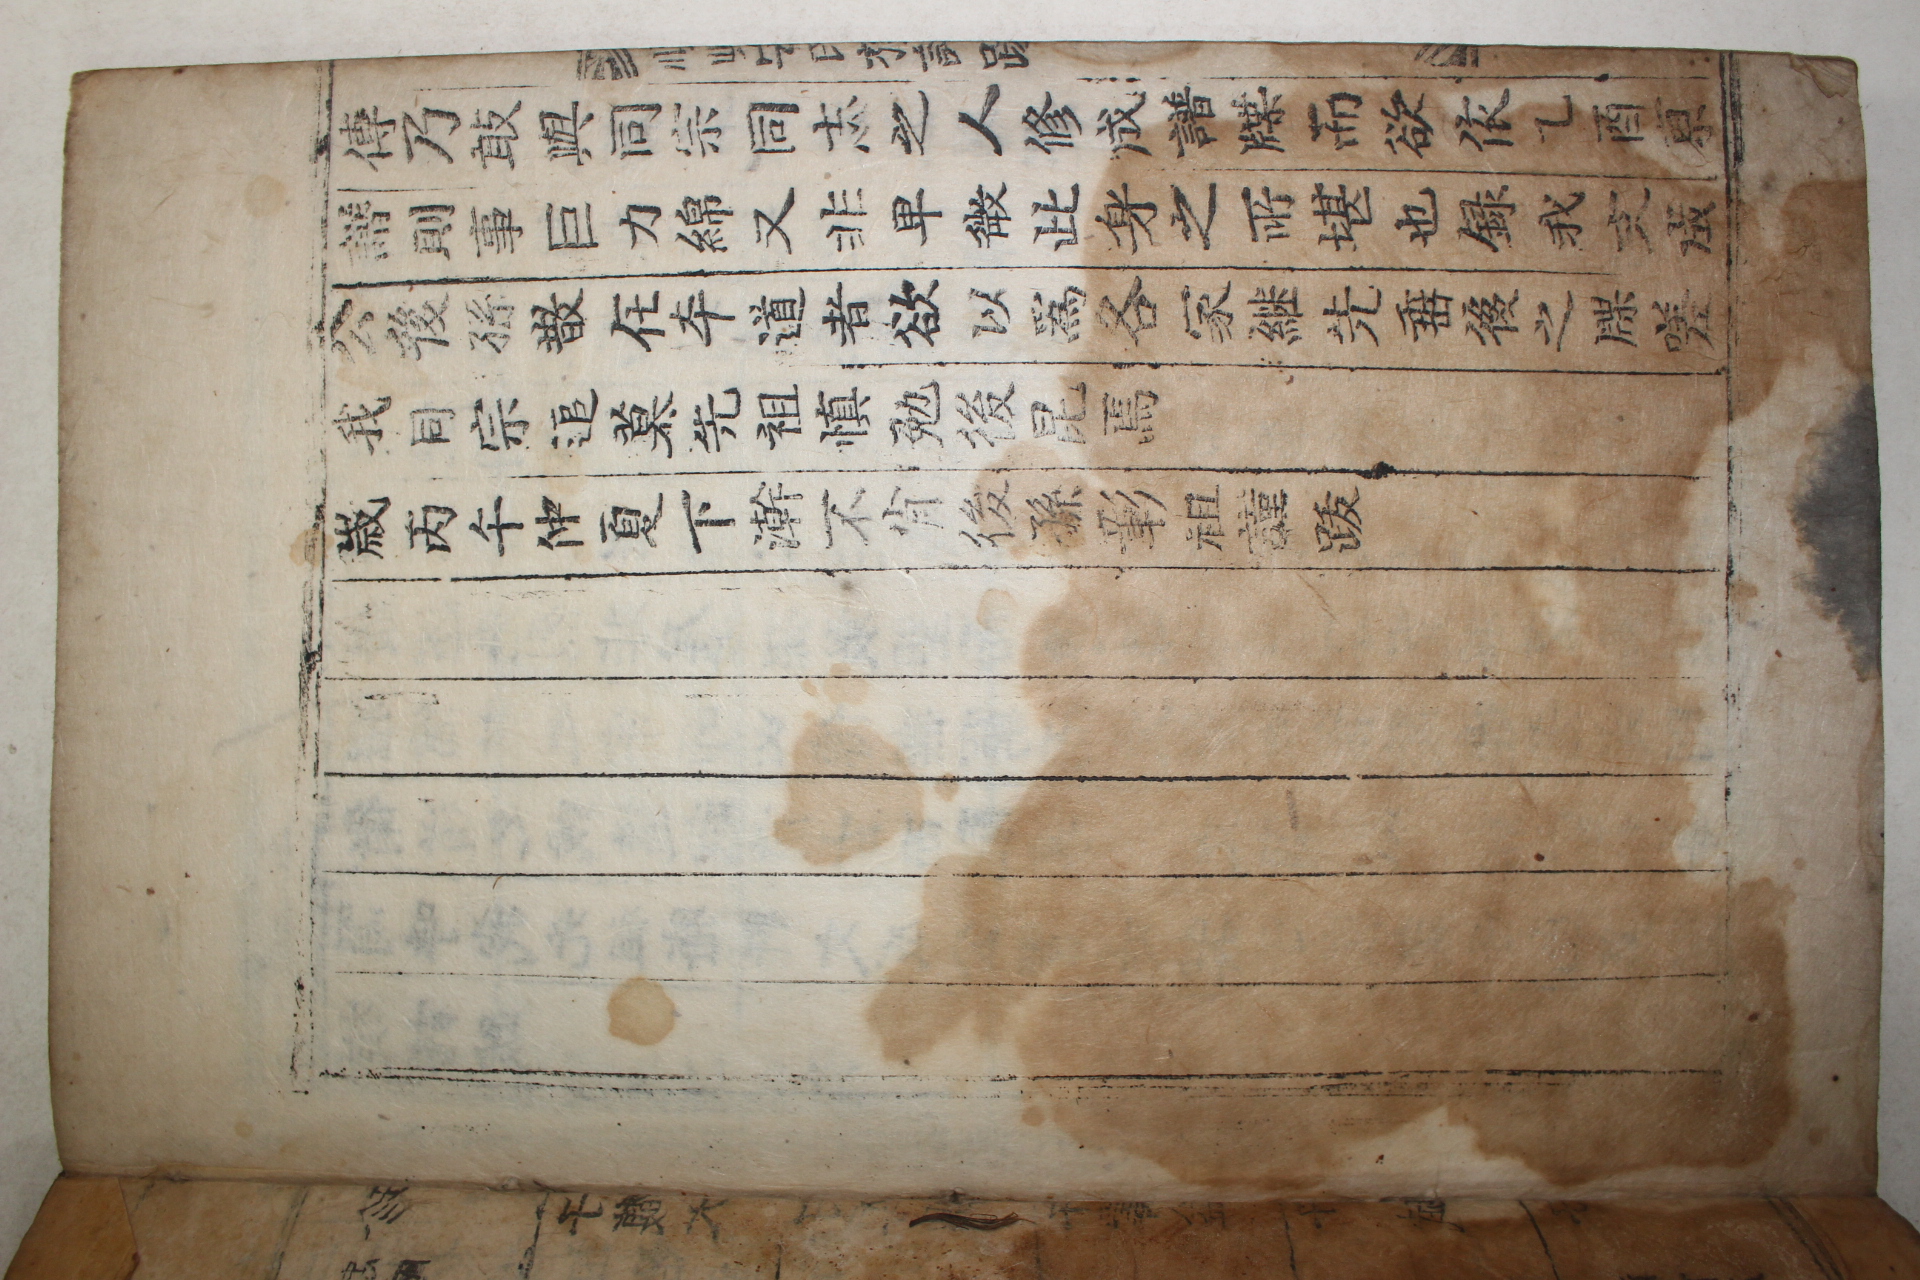 傳乃敢與同宗同志之人修成譜牒而欲依乙酉原
譜則事巨力綿又非卑微此身之所堪也録我文成
公後孫散在本道者欲以爲各家継先垂後之牒嗟
我同宗追慕先祖愼勉後昆焉
歲丙午仲夏下澣不肖後孫彰祖謹跋
順興安氏族譜跋